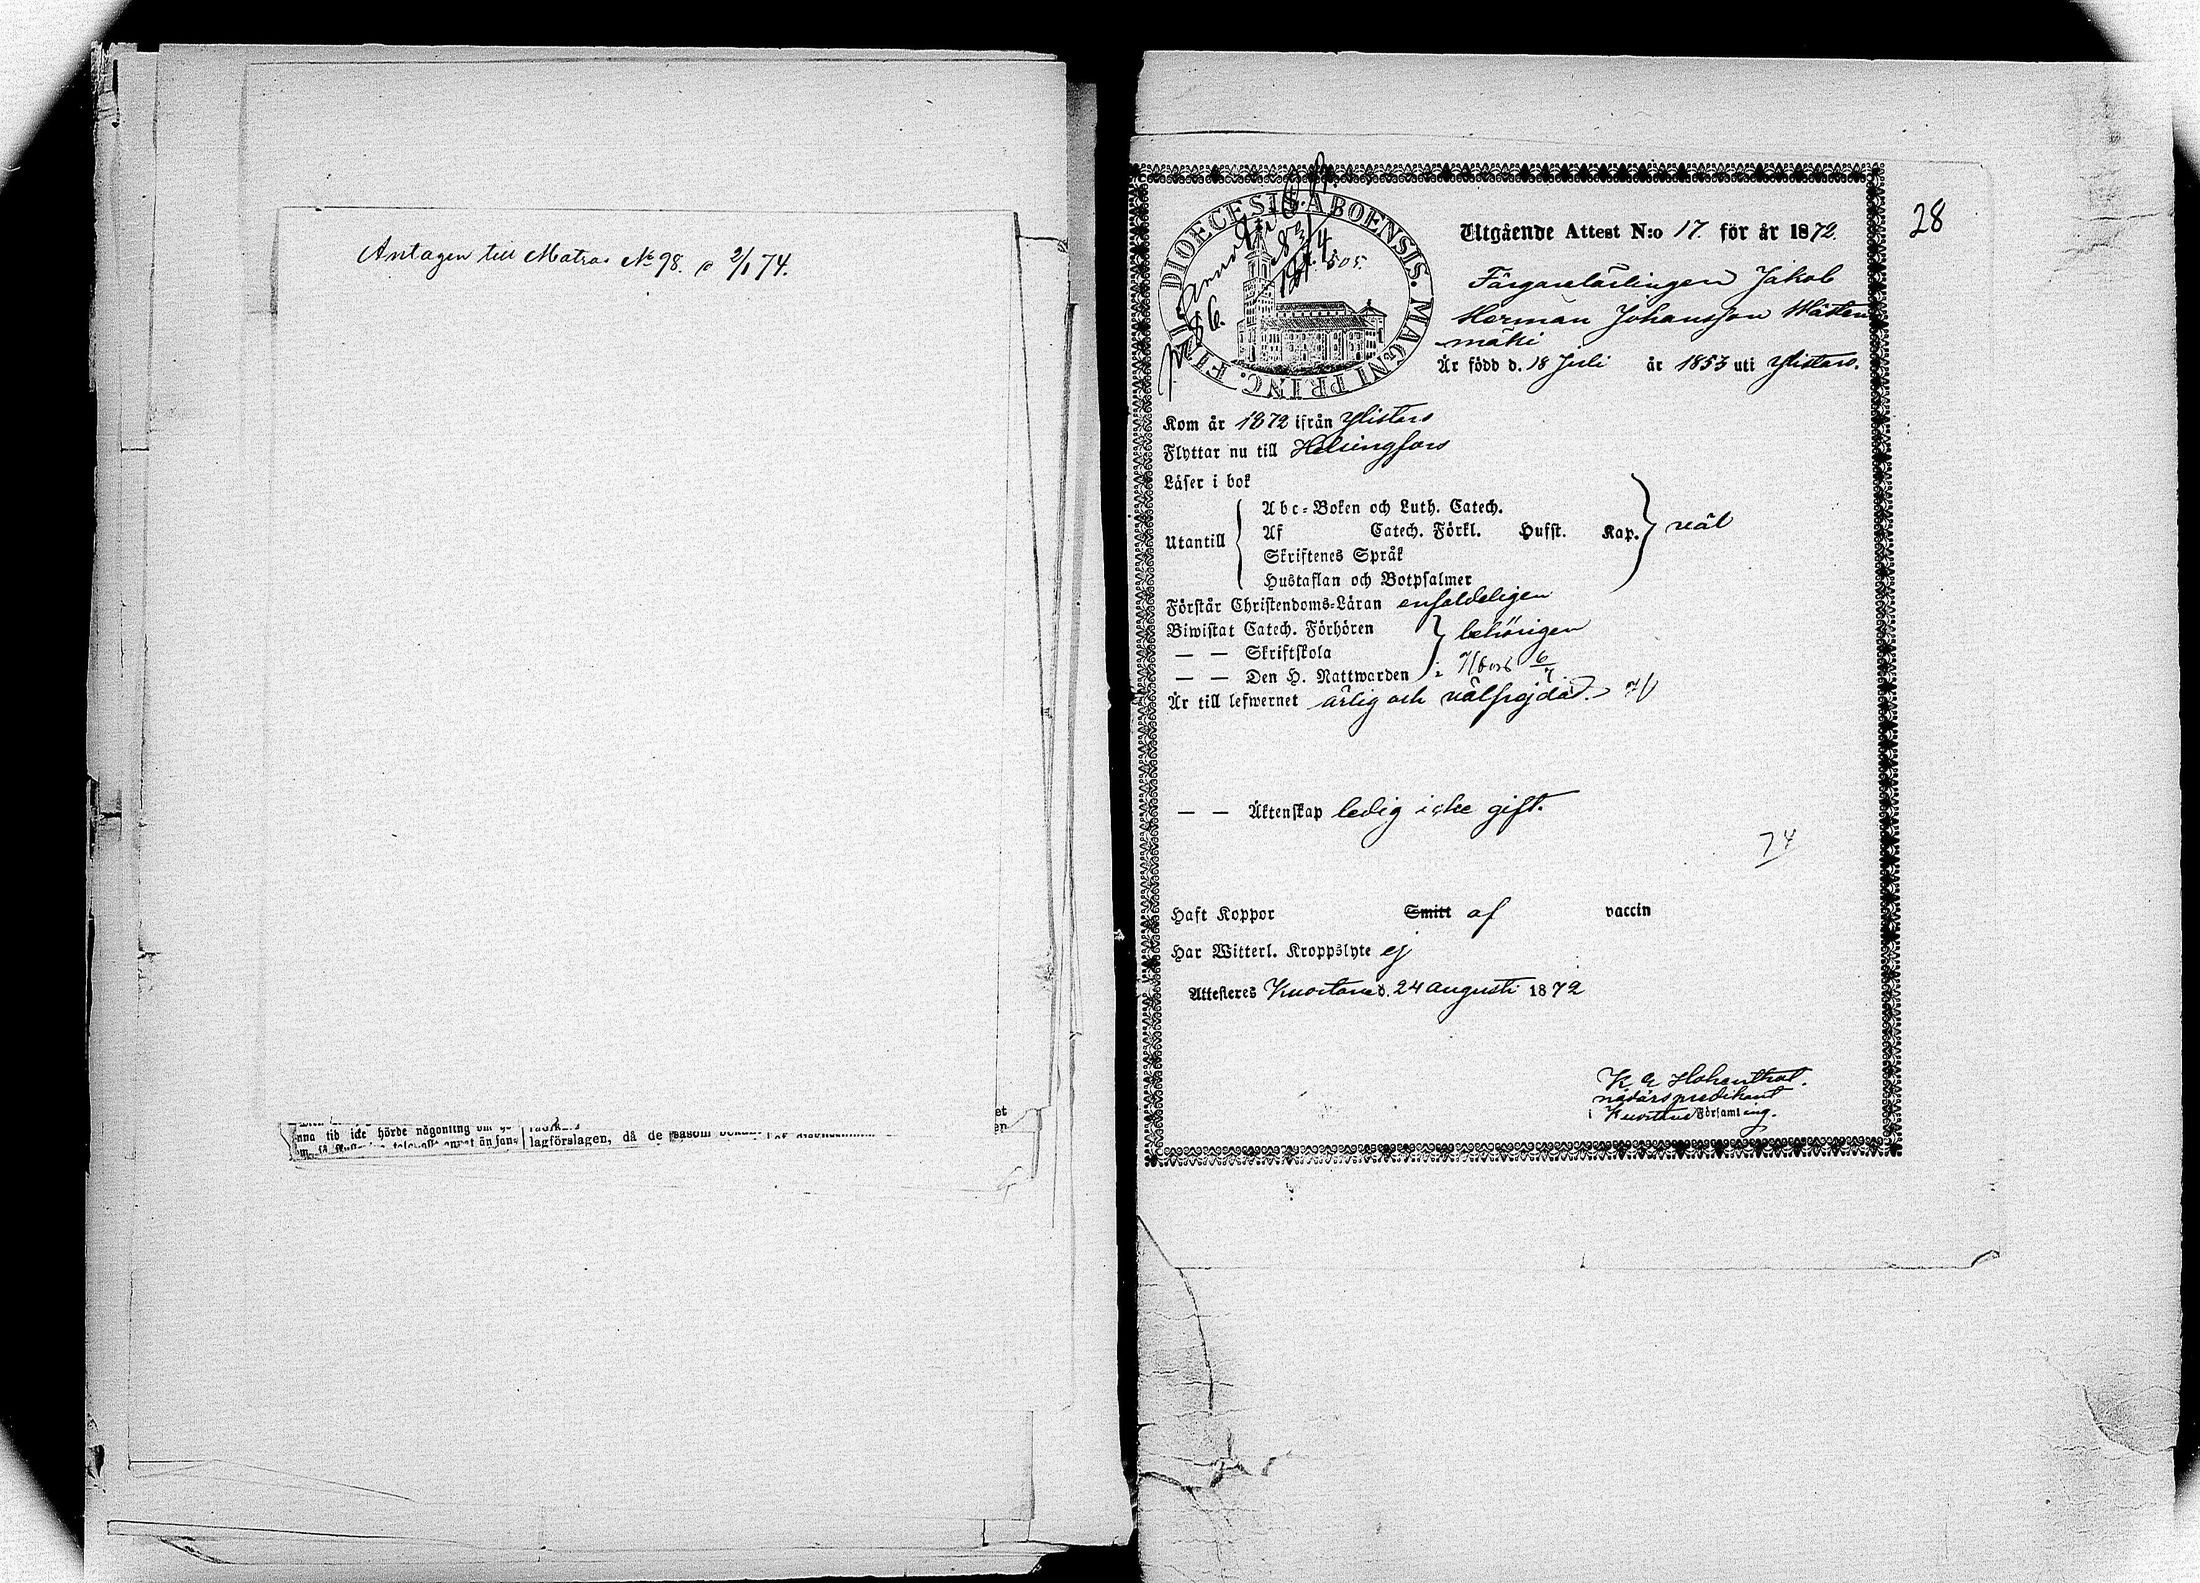 Antagen till Matros No 98. d 2/1 74.
et
nna tid icke hörde någonting om
lagförslagen, då de såsom
en
28
DIOECESIS ABOENSIS. MAGNI PRINC. FINL.
Anmält
1874.
505.
Utgående Attest N:o 17. för år 1872.
Färgarelärlingen Jakob
Herman Johansson Mäten
mäki
Är född d. 18 Juli år 1853 uti Ylistaro.
Kom år 1872 ifrån Ylistaro
Flyttar nu till Helsingfors
Läser i bok
Utantill
Abc-Boken och Luth. Catech.
Af Catech. Förkl. Hufst. Kap.
väl
Skriftenes Språk
Hustaflan och Botpsalmer
Förstår Christendoms-Läran enfaldeligen
Biwistat Catech. Förhören behörigen
— — Skriftskola
— — Den H. Nattwarden 6/7
Är till lefwernet ärlig och välfrejdad.
— — Äktenskap ledig icke gift.
74
Haft Koppor Smitt af vaccin
Har Witterl. Kroppslyte ej
Attesteres Kuortane d. 24 augusti 1872
K E Hohenthal.
nådårspredikant
i Kuortane Församling.